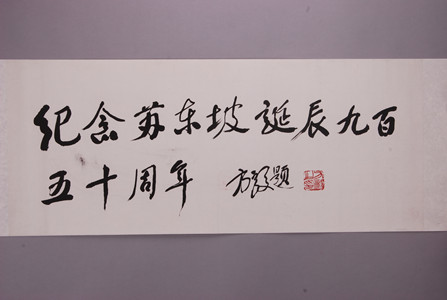 纪念苏东坡诞辰九百
五十周年 方毅题